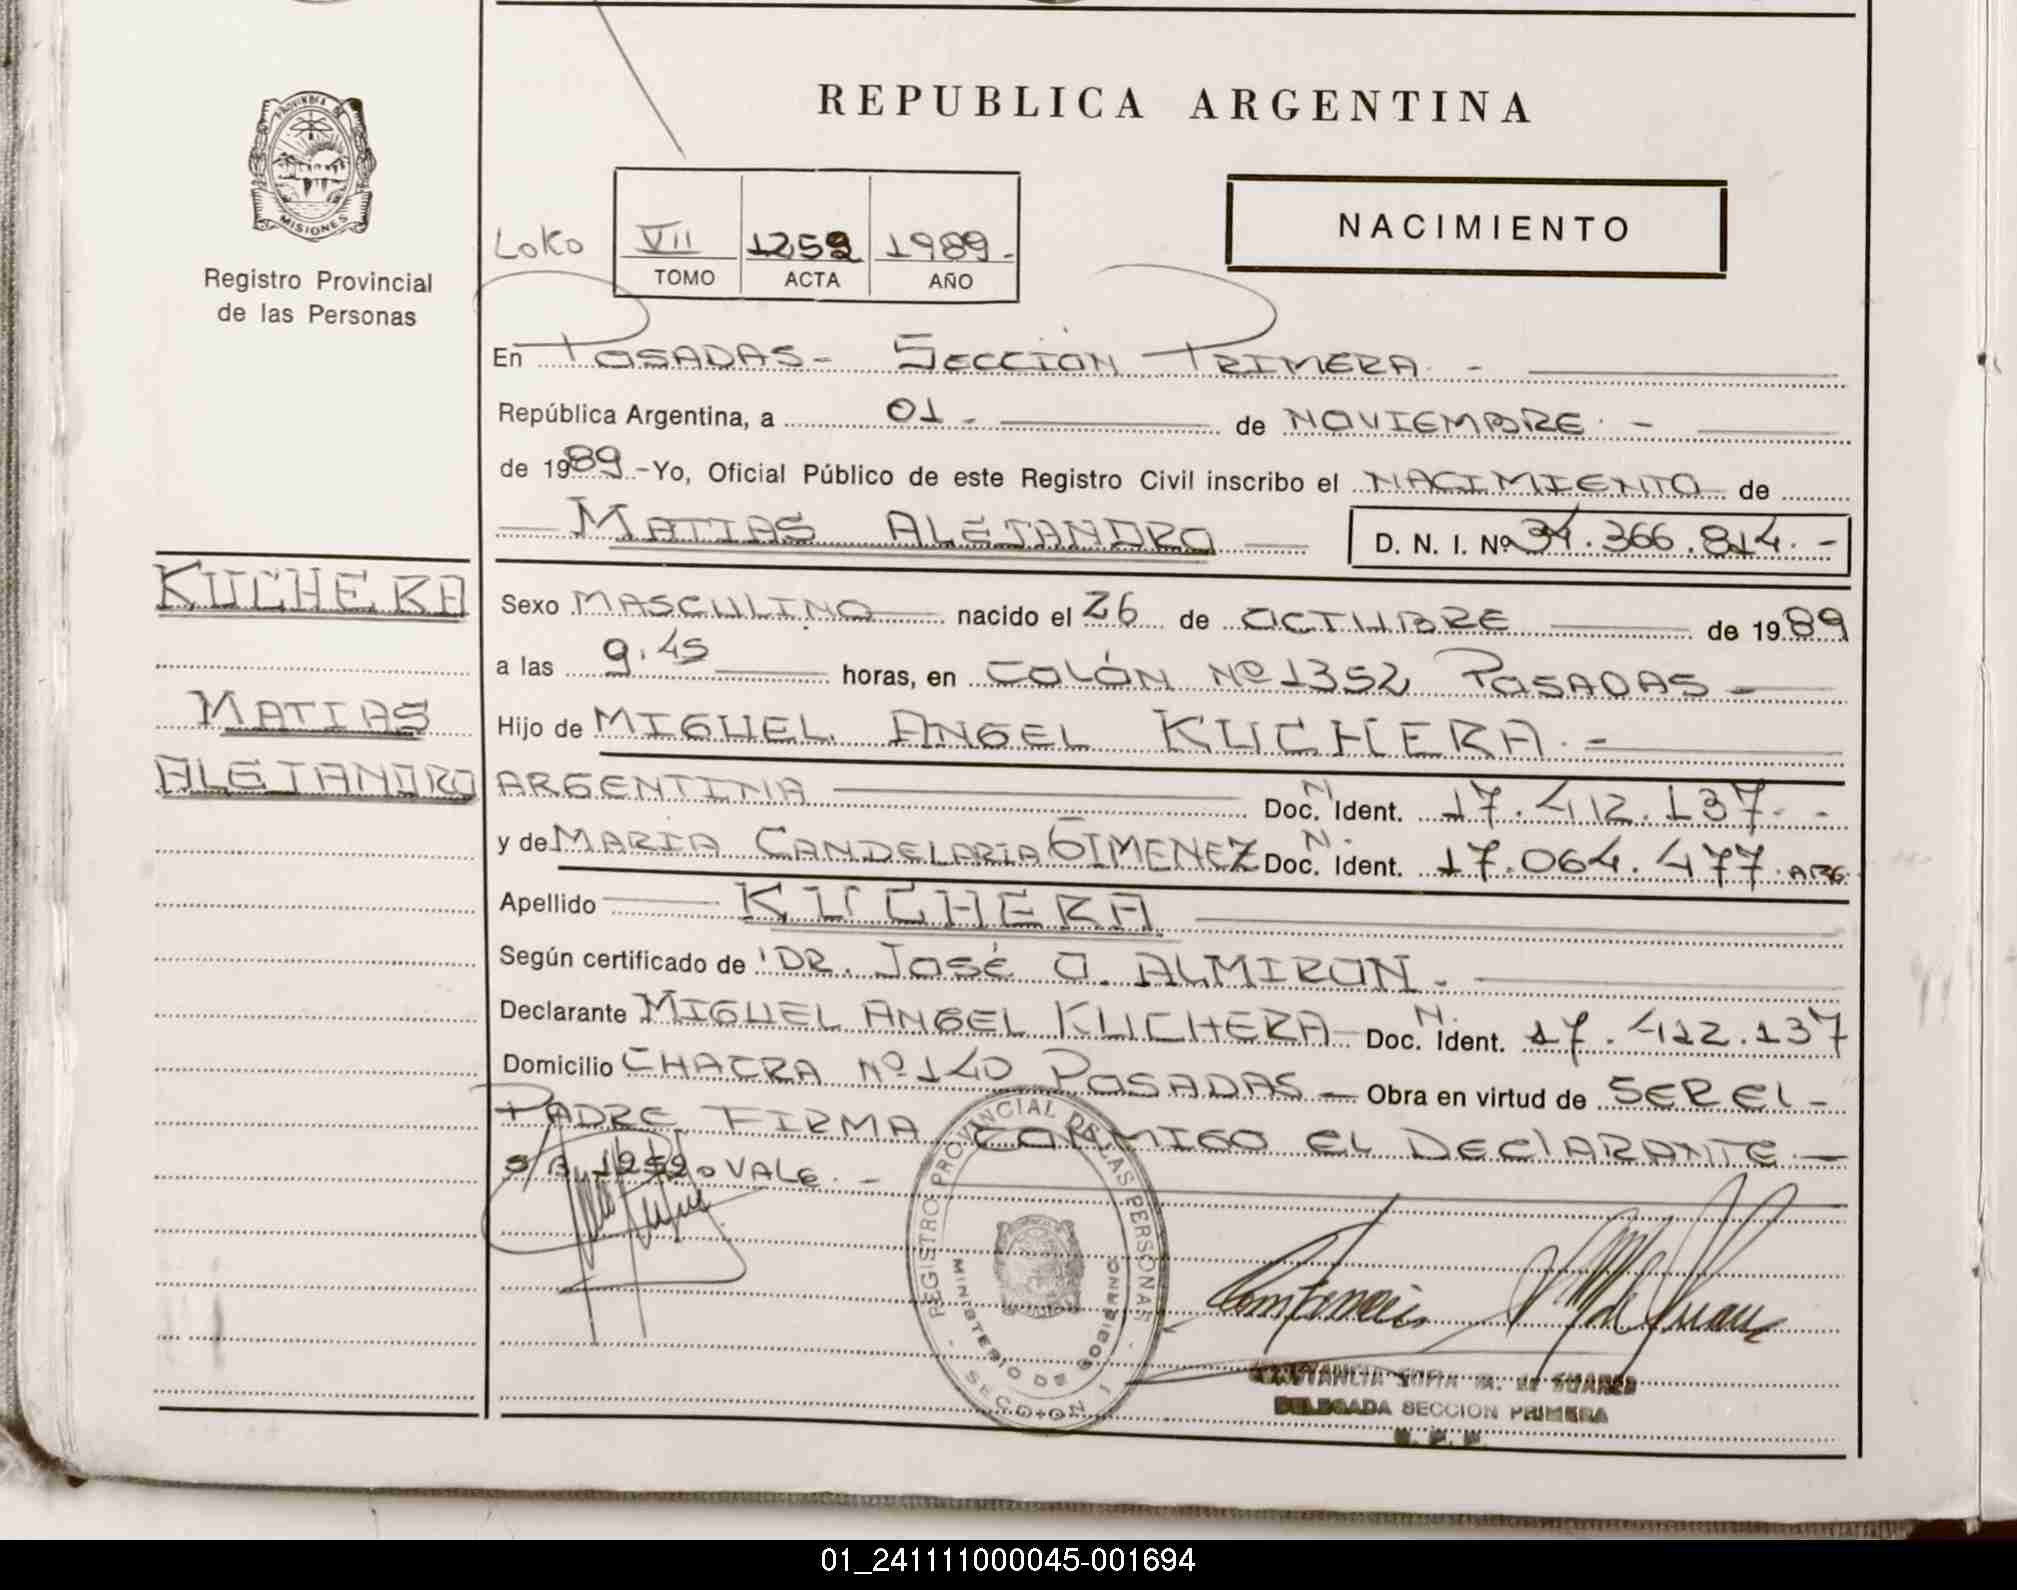 REPUBLICA ARGENTINA
PROVINCIA DE
MISIONES
Registro Provincial
de las Personas
NACIMIENTO
Loko VII 1259 1989.-
TOMO ACTA AÑO
En POSADAS- SECCION PRIMERA. -
República Argentina, a 01.- de NOVIEMBRE. -
de 1989.-Yo, Oficial Público de este Registro Civil inscribo el NACIMIENTO de
MATIAS ALEJANDRO D. N. I. Nº 34.366.814.-
KUCHERA
MATIAS
ALEJANDRO
Sexo MASCULINO nacido el 26 de OCTUBRE de 1989
a las 9.45 horas, en COLÓN Nº 1352 POSADAS -
Hijo de MIGUEL ANGEL KUCHERA. -
ARGENTINA Doc. N Ident. 17.412.137.- -
y de MARIA CANDELARIA GIMENEZ Doc. N. Ident. 17.064.477. ARG.
Apellido KUCHERA
Según certificado de DR. JOSÉ O. ALMIRON. -
Declarante MIGUEL ANGEL KUCHERA- Doc. N. Ident. 17.412.137
Domicilio CHACRA Nº 140 POSADAS - Obra en virtud de SER EL -
PADRE FIRMA CONMIGO EL DECLARANTE. -
S/B 1259. VALE. -
REGISTRO PROVINCIAL DE LAS PERSONAS
MINISTERIO DE GOBIERNO
- SECCION 1 -
CONSTANCIA SOFIA M. de SUAREZ
DELEGADA SECCION PRIMERA
01_241111000045-001694